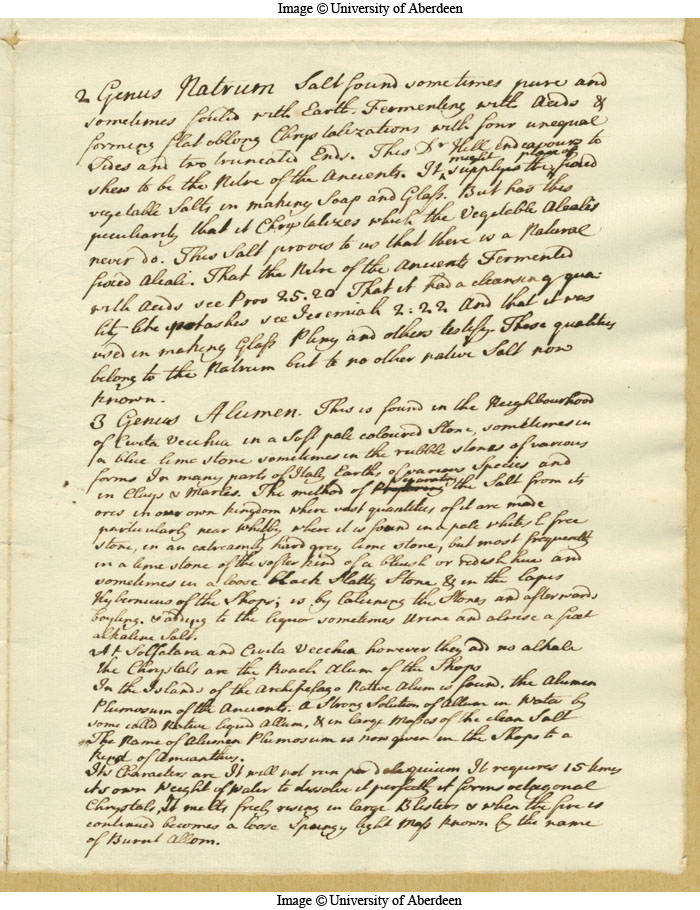 Image © University of Aberdeen
2 Genus Natrum Salt found sometimes pure and
sometimes fould with Earth. Fermenting with Acids &
forming flat oblong Chrystalizations with four unequal
Sides and two truncated Ends. This Dr Hill Endeavours to
shew to be the Nitre of the Ancients. It might supply the place of fixed
vegetable Salts in making Soap and Glass. But has this
peculiarity that it Chrystalizes which the Vegetable Alcalis
never do. This Salt proves to us that there is a Natural
fixed Alcali. That the Nitre of the Ancients Fermented
with Acids see Prov 25.20 That it had a cleansing qua-
lity like potashes see Jeremiah 2:22 And that it was
used in making Glass Pliny and others testify. These qualities
belong to the Natrum but to no other native Salt now
known.
3 Genus Alumen. This is found in the Neighbourhood
of Civita Vecchia in a Soft pale coloured Stone, sometimes in
a blue lime stone sometimes in the rubble stones of various
forms In many parts of Italy, Earths of various Species and
in Clays & Marles. The method of Separating the Salt from its
ores in our own kingdom where vast quantities of it are made
particularly near Whitby, where it is found in a pale whitish free
stone, in an extreamly hard grey lime stone, but most frequently
in a lime stone of the softer kind of a bluish or redish hue and
sometimes in a loose black Slatty Stone & in the Lapis
Hybernicus of the Shops; is by Calcining the Stones and afterwards
boyling, & adding to the liquor sometimes Urine and always a fixt
alkaline Salt.
At Solfatara and Civita Vecchia however they add no alkale
The Chrystals are the Roach Alum of the Shops
In the Islands of the Archipelago Native Alum is found, the Alumen
Plumosum of the Ancients. A Strong Solution of Allum in Water by
some called Native liquid Allum, & in large Masses of the clean Salt
The Name of Alumen Plumosum is now given in the Shops to a
kind of Amianthus.
Its Characters are It will not run per deliquium It requires 15 times
its own Weight of Water to dissolve it perfectly it forms octagonal
Chrystals, It melts freely rising in large Blisters & when the fire is
continued becomes a loose Spungy light Mass known by the name
of Burnt Allom.
Image © University of Aberdeen